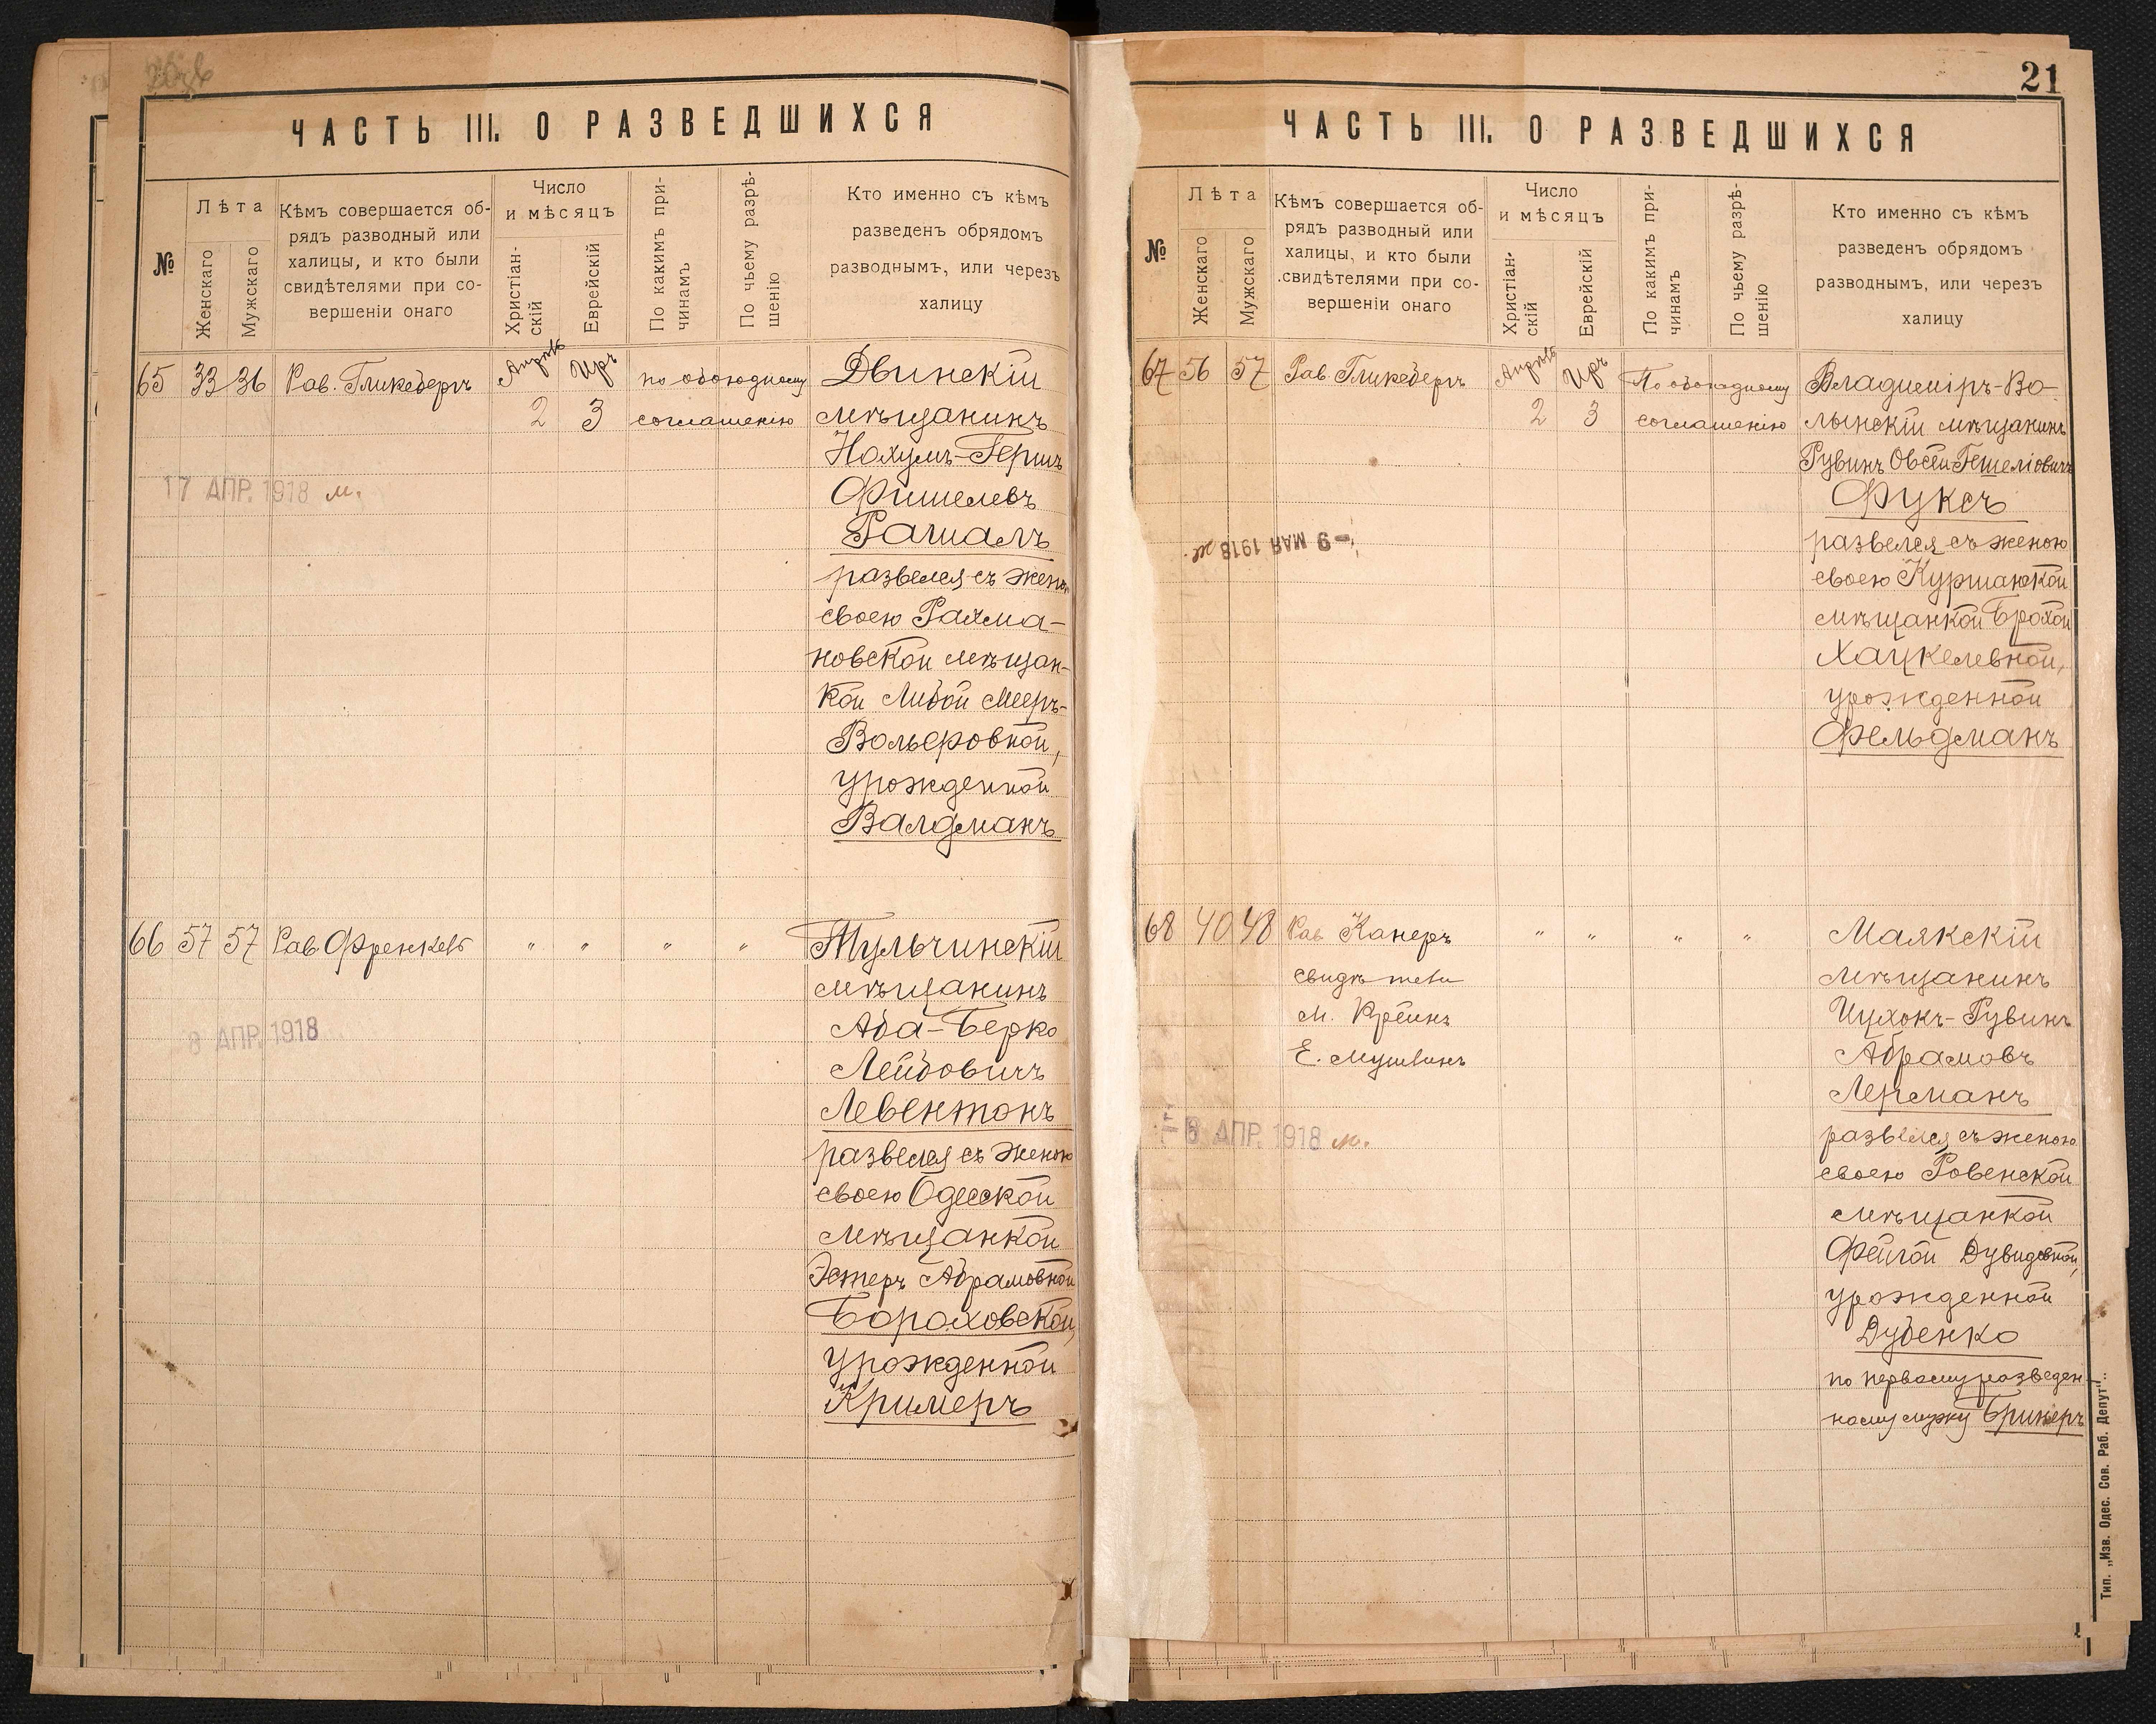 21
ЧАСТЬ III. О РАЗВЕДШИХСЯ
№
Лѣта
Женскаго
Мужскаго
Кѣмъ совершается об-
рядъ разводный или
халицы, и кто были
свидѣтелями при со-
вершеніи онаго
Число
и мѣсяцъ
Христіан-
скій
Еврейскій
По какимъ при-
чинамъ
По чьему разрѣ-
шенію
Кто именно съ кѣмъ
разведенъ обрядомъ
разводнымъ, или черезъ
халицу
65 33 36 Рав. Гликсбергъ Апрѣль 2 Иръ 3 по обоюдному
соглашенію
Двинскій
мѣщанинъ
Нохумъ-Гершъ
Фишелевъ
Рашалъ
развелся съ женою
своею Рахма-
новской мѣщан-
кой Либой Мееръ-
Вольфовной,
урожденной
Валдманъ
17 АПР. 1918 м.
66 57 57 Рав Френкель " " " "
Тульчинскій
мѣщанинъ
Аба-Берко
Лейбовичъ
Левентонъ
развелся съ женою
своею Одесской
мѣщанкой
Эстеръ Абрамовной
Бораховской,
урожденной
Кримеръ
8 АПР. 1918
ЧАСТЬ III. О РАЗВЕДШИХСЯ
№
Лѣта
Женскаго
Мужскаго
Кѣмъ совершается об-
рядъ разводный или
халицы, и кто были
свидѣтелями при со-
вершеніи онаго
Число
и мѣсяцъ
Христіан-
скій
Еврейскій
По какимъ при-
чинамъ
По чьему разрѣ-
шенію
Кто именно съ кѣмъ
разведенъ обрядомъ
разводнымъ, или черезъ
халицу
67 56 57 Рав Гликсбергъ Апрѣль 2 Иръ 3 По обоюдному
соглашенію
Владиміръ-Во-
лынскій мѣщанинъ
Рувинъ Овсей Гешеліовичъ
Фуксъ
развелся съ женою
своею Куршанской
мѣщанкой Брохой
Хацкелевной,
урожденной
Фельдманъ
-9 МАЯ 1918 ж.
68 40 48 Рав Канеръ " " " "
свидѣтели
М. Крейнъ
Е.
Маякскій
мѣщанинъ
Ицхокъ-Рувинъ
Абрамовъ
Лерманъ
развелся съ женою
своею Ровенской
мѣщанкой
Фейгой Дувидовной,
урожденной
Дубенко
по первому разведен-
ному мужу Бринеръ
8 АПР. 1918 м.
Тип. „Изв. Одес. Сов. Раб. Депут".